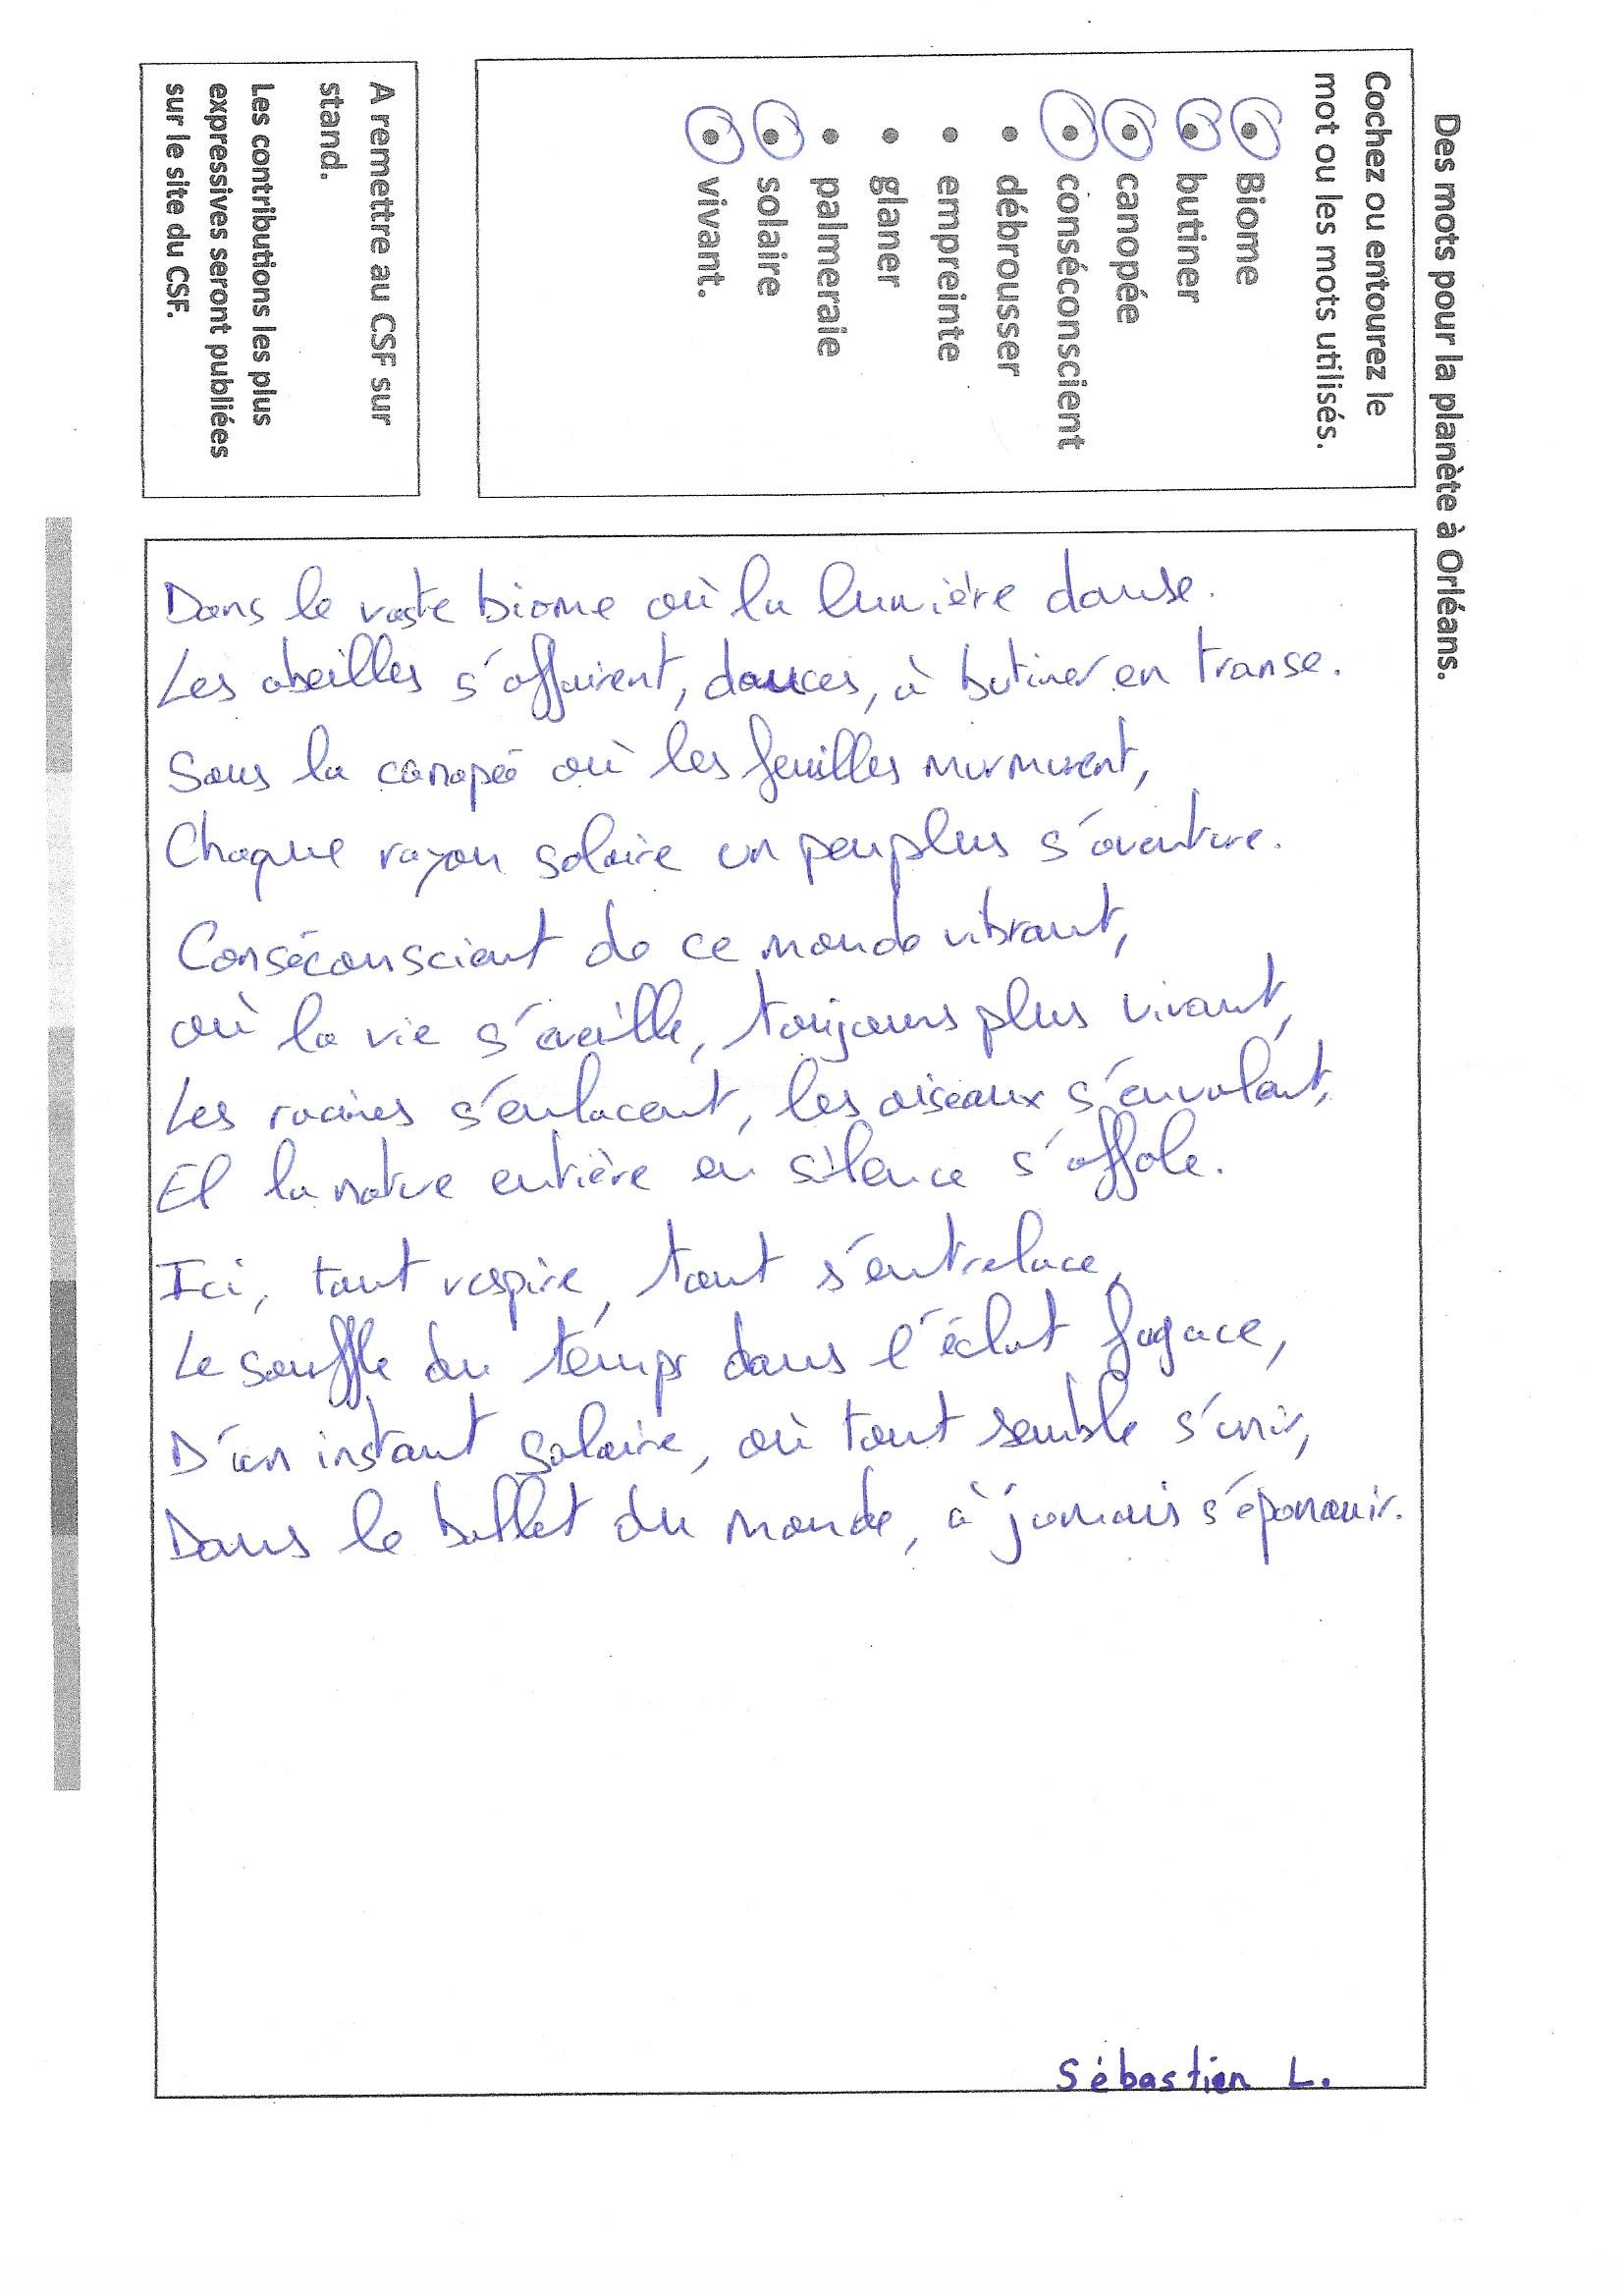 Des mots pour la planète à Orléans.
Cochez ou entourez le
mot ou les mots utilisés.
• Biome
• butiner
• canopée
• conséconscient
• débrousser
• empreinte
• glaner
• palmeraie
• solaire
• vivant.
A remettre au CSF sur
stand.
Les contributions les plus
expressives seront publiées
sur le site du CSF.
Dans le vaste biome où la lumière danse.
Les abeilles s'affairent, douces, à butiner en transe.
Sous la canopée où les feuilles murmurent,
Chaque rayon solaire un peu plus s'aventure.
Conséconscient de ce monde vibrant,
où la vie s'éveille, toujours plus vivant,
Les racines s'enlacent, les oiseaux s'envolent,
Et la nature entière en silence s'affole.
Ici, tout respire, tout s'entrelace,
Le souffle du temps dans l'éclat fugace,
D'un instant solaire, où tout semble s'unir,
Dans le ballet du monde, à jamais s'épanouir.
Sébastien L.